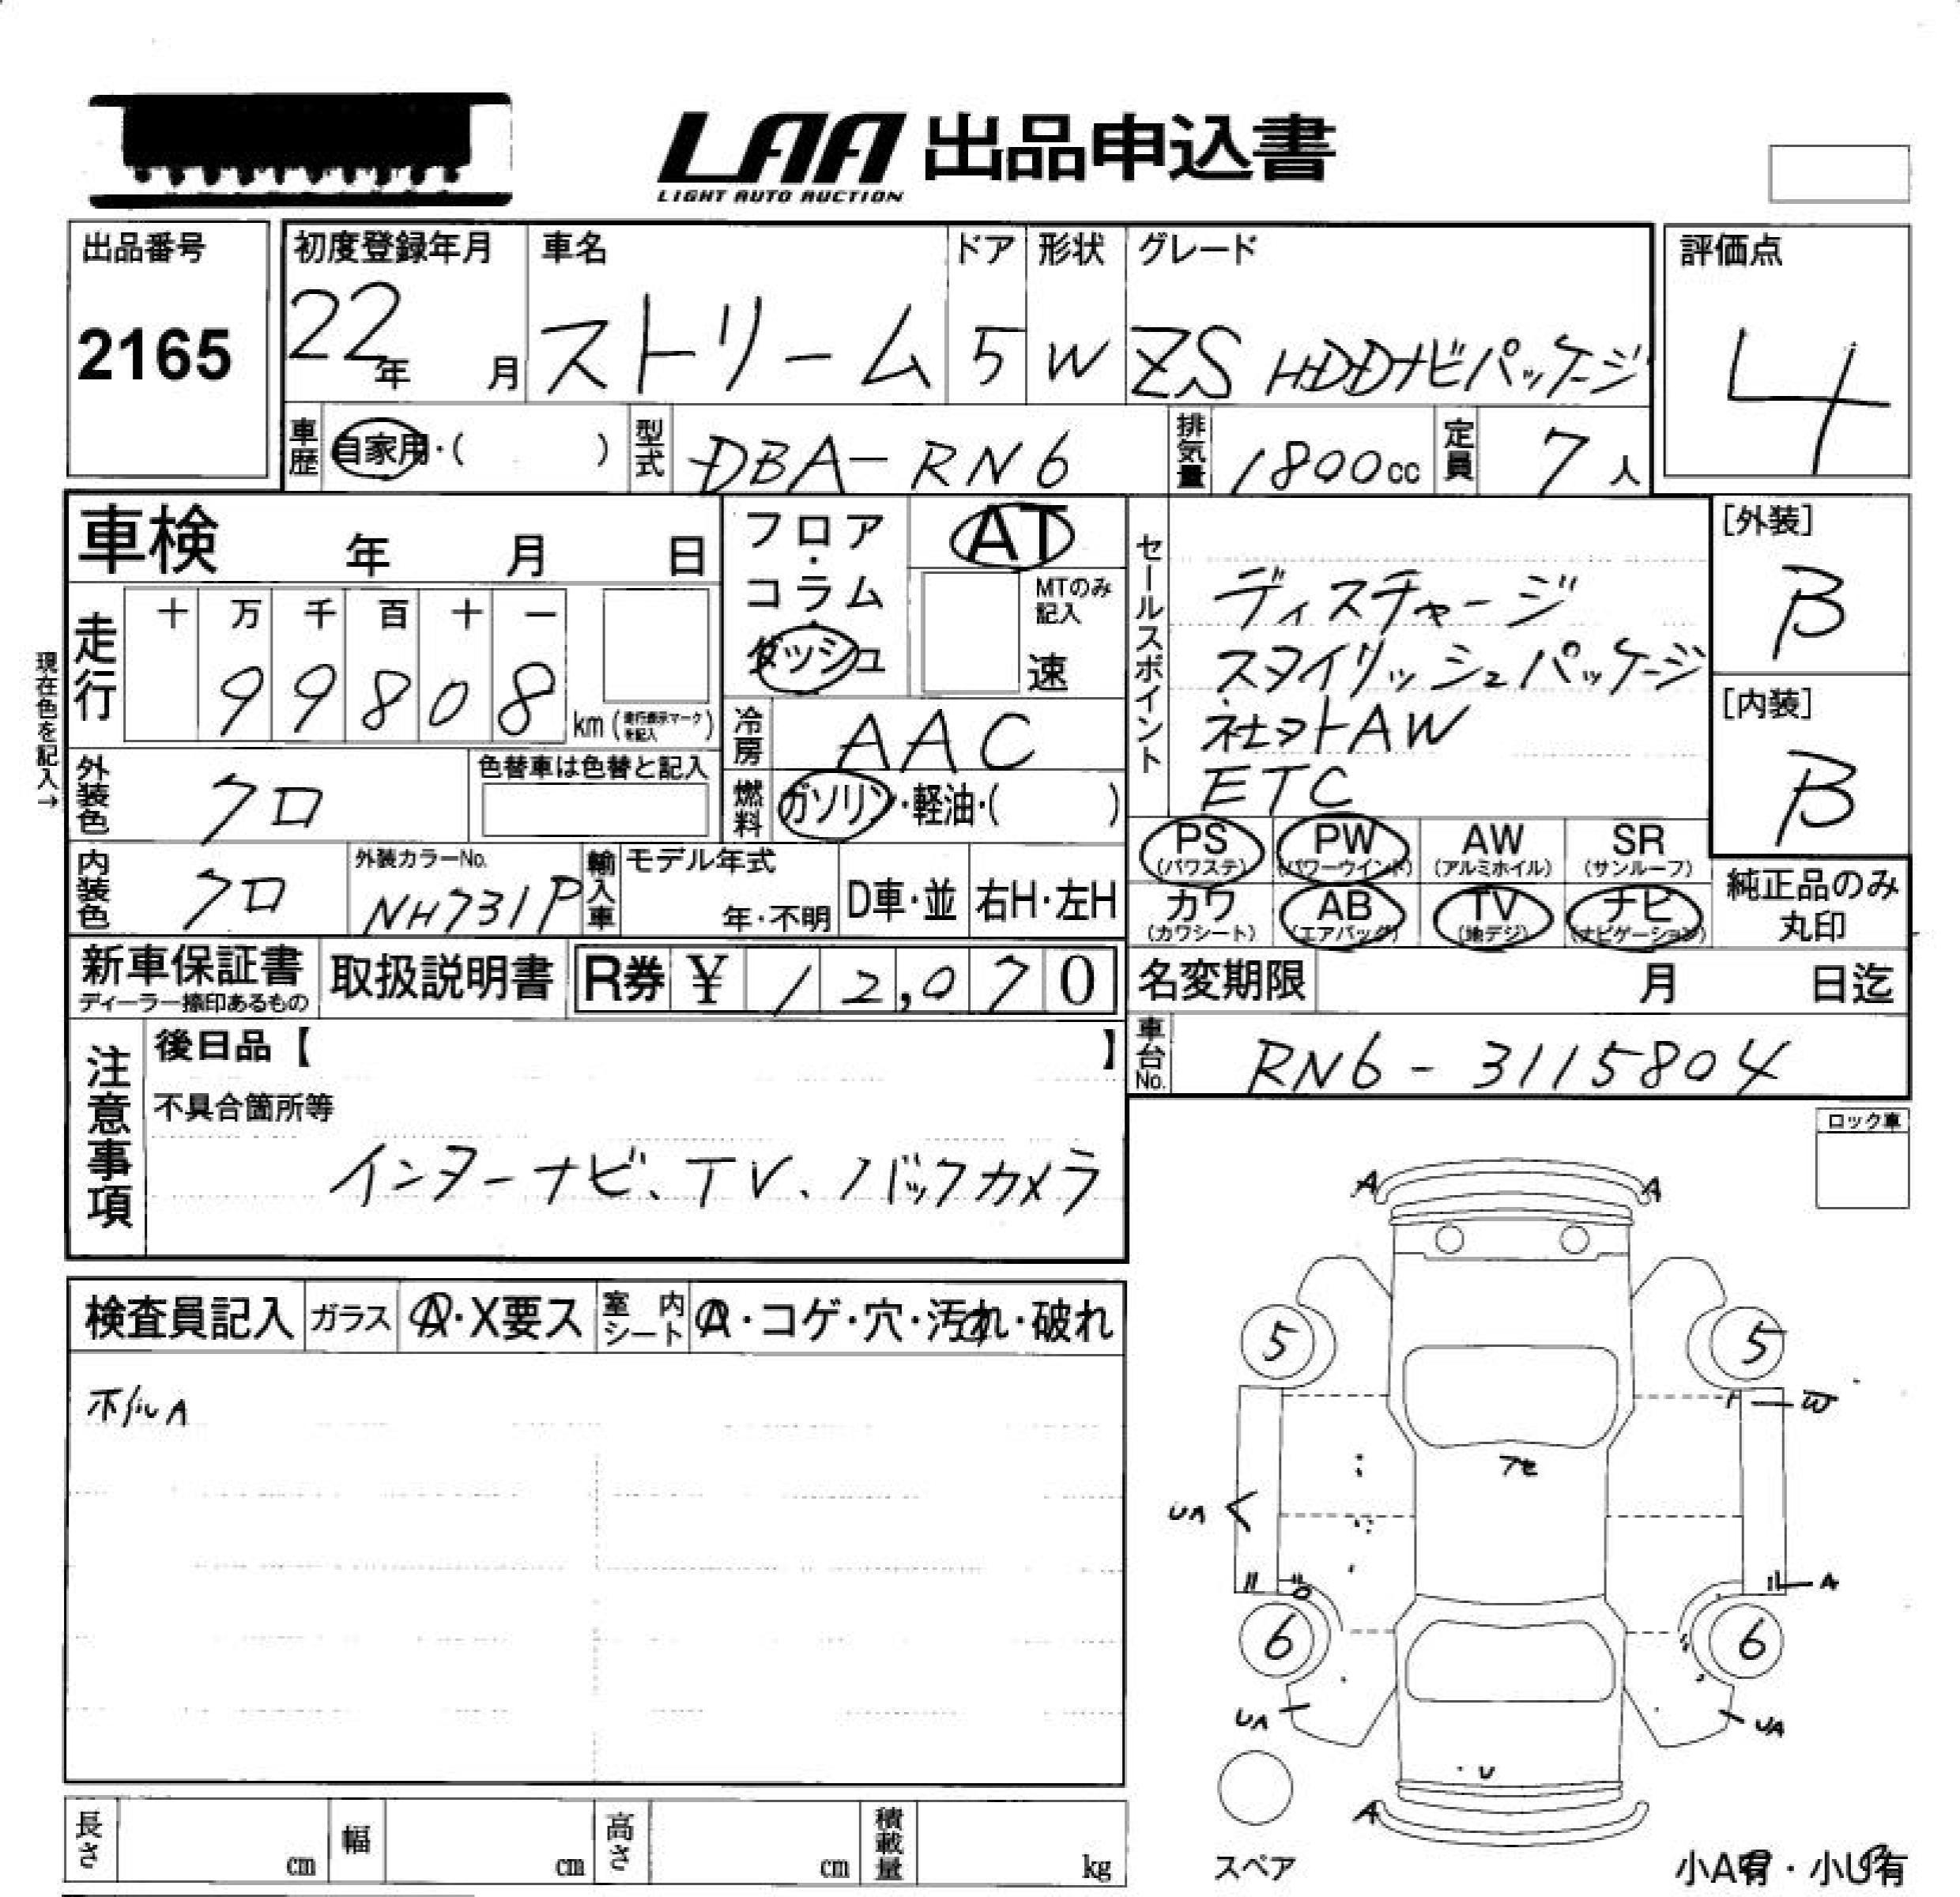 LAA 出品申込書
LIGHT AUTO AUCTION
出品番号
2165
初度登録年月
22年 月
車名
ストリーム
ドア
5
形状
W
グレード
ZS HDDナビパッケージ
評価点
4
車歴 自家用・( )
型式 DBA-RN6
排気量 1800cc
定員 7人
車検 年 月 日
フロア・コラム
ダッシュ
AT
MTのみ記入
速
現在色を記入→
走行 十 万 千 百 十 一
99808 km (走行表示マークを記入)
冷房 AAC
燃料 ガソリン・軽油・( )
外装色 クロ
色替車は色替と記入
内装色 クロ
外装カラーNo.
NH731P
輸入車
モデル年式
年・不明
D車・並
右H・左H
セールスポイント
ディスチャージ
スタイリッシュパッケージ
社ヨトAW
ETC
[外装]
B
[内装]
B
PS (パワステ)
PW (パワーウインド)
AW (アルミホイル)
SR (サンルーフ)
カワ (カワシート)
AB (エアバッグ)
TV (地デジ)
ナビ (ナビゲーション)
純正品のみ
丸印
新車保証書
ディーラー捺印あるもの
取扱説明書
R券 ¥12,070
名変期限 月 日迄
車台No. RN6-3115804
注意事項
後日品【 】
不具合箇所等
インターナビ、TV、バックカメラ
ロック車
検査員記入
ガラス A・X要ス
室内シート A・コゲ・穴・汚れ・破れ
ホイルA
A A
5 5
W
アセ
UA
A
6 6
UA UA
U
A
スペア
小A有・小U有
長さ cm
幅 cm
高さ cm
積載量 kg